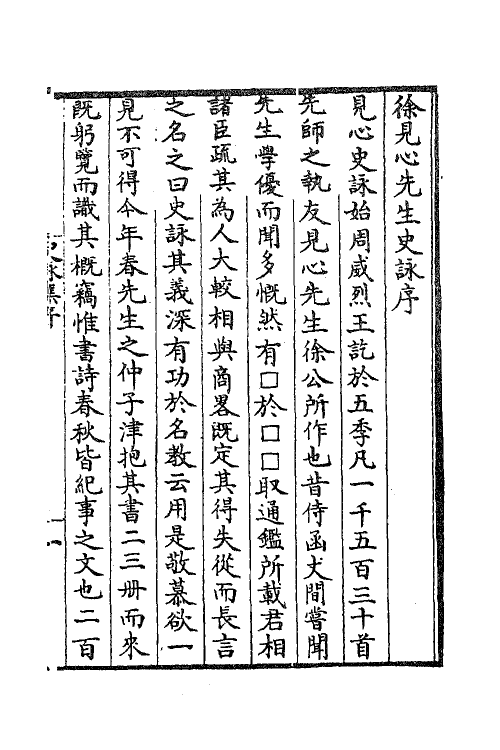 徐見心先生史詠序
見心史詠始周威烈王訖於五季凡一千五百三十首
先師之執友見心先生徐公所作也昔侍函丈間嘗聞
先生學優而聞多慨然有□於□□取通鑑所載君相
諸臣疏其為人大較相與商畧既定其得失從而長言
之名之曰史詠其義深有功於名教云用是敬慕欲一
見不可得今年春先生之仲子津抱其書二三冊而來
既躬覽而識其概竊惟書詩春秋皆紀事之文也二百